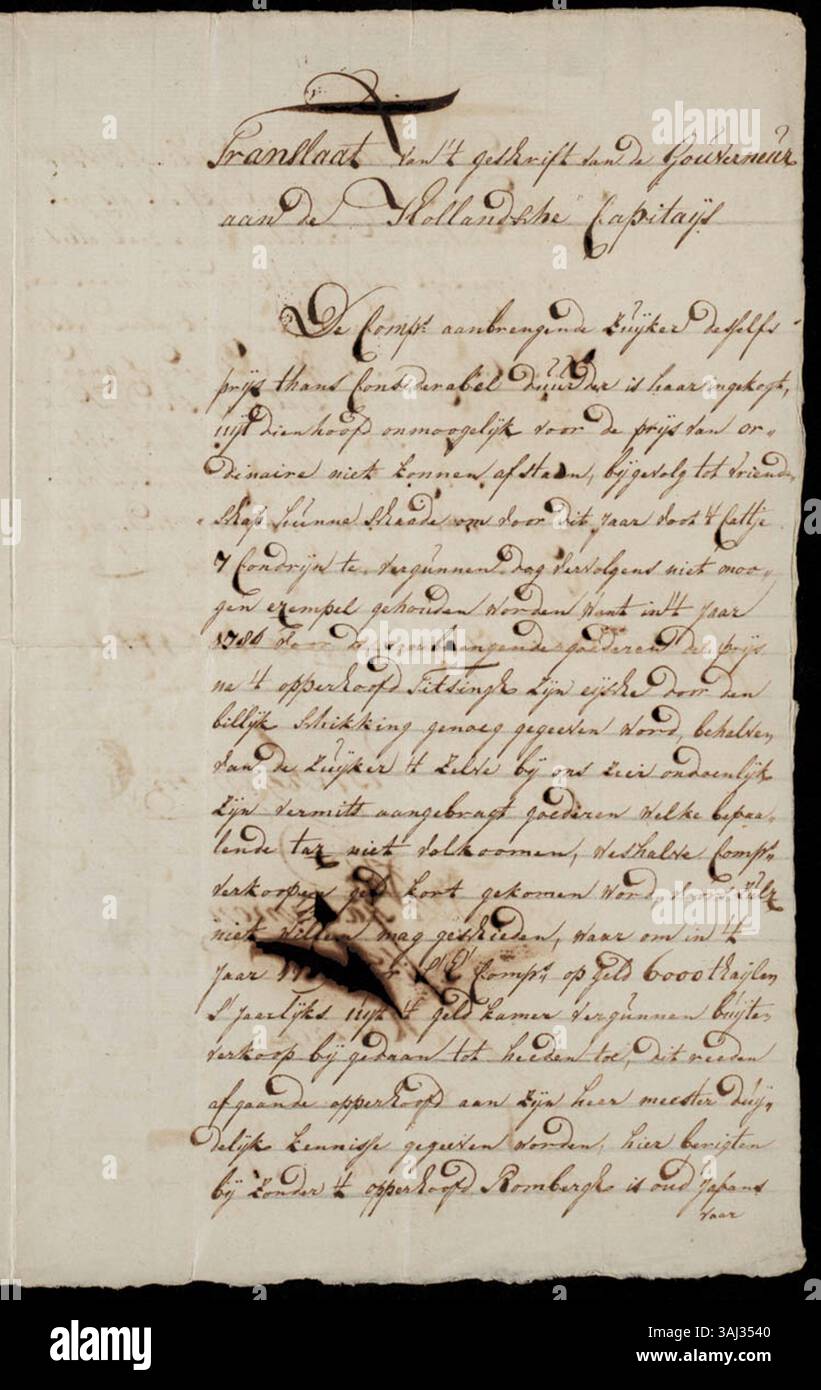 Translaat van 't geschrift van de Gouverneur
aan de Hollandsche Capitaijs
De Comp:s aanbrengende Zuijker deszelfs
prijs thans Considerabel duurder is haar ingekogt,
uijt dien hoofd onmoogelijk voor de prijs van or-
dinaire niet konnen afstaan, bijgevolg tot vriend-
schap hunne schaade om voor dit Jaar voor 't Cattje
7 Condrijn te vergunnen dog vervolgens niet moo-
gen exempel gehouden worden want in 't Jaar
door de goederen de prijs
na 't opperhoofd Titsingh zijn eijsche door den
billijk schikking genoeg gegeeven word, behalven
van de Zuijker 't zelve bij ons zeer ondoenlijk
zijn vermits aangebragt goederen welke bepaa-
lende tax niet volkoomen, weshalve Comp:s
verkoopen geld kort gekomen word, zulx
niet willen mag geschieden, waar om in 't
Jaar Comp:s op geld 6000 thaijlen
'S Jaarlijks uijt 't geld kamer vergunnen buijten
verkoop bij gedaan tot heeden toe, dit reeden
afgaande opperhoofd aan zijn heer meester duij-
delijk kennisse gegeeven worden, hier berigten
bij zonder 't opperhoofd Rombergh is oud Japans
vaar
alamy
a
alamy
Image ID: 3AJ3540
www.alamy.com